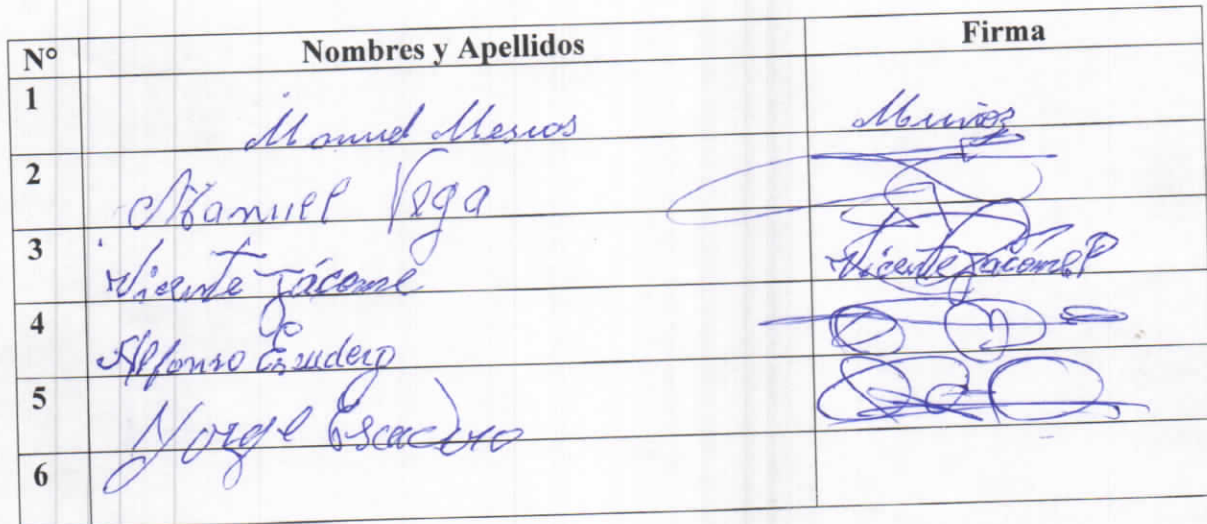 N° Nombres y Apellidos Firma
1 Manuel Mesias Muñoz
2 Manuel Vega
3 Vicente Jácome Vicente Jácome P
4 Alfonso Escudero
5 Jorge Escudero
6